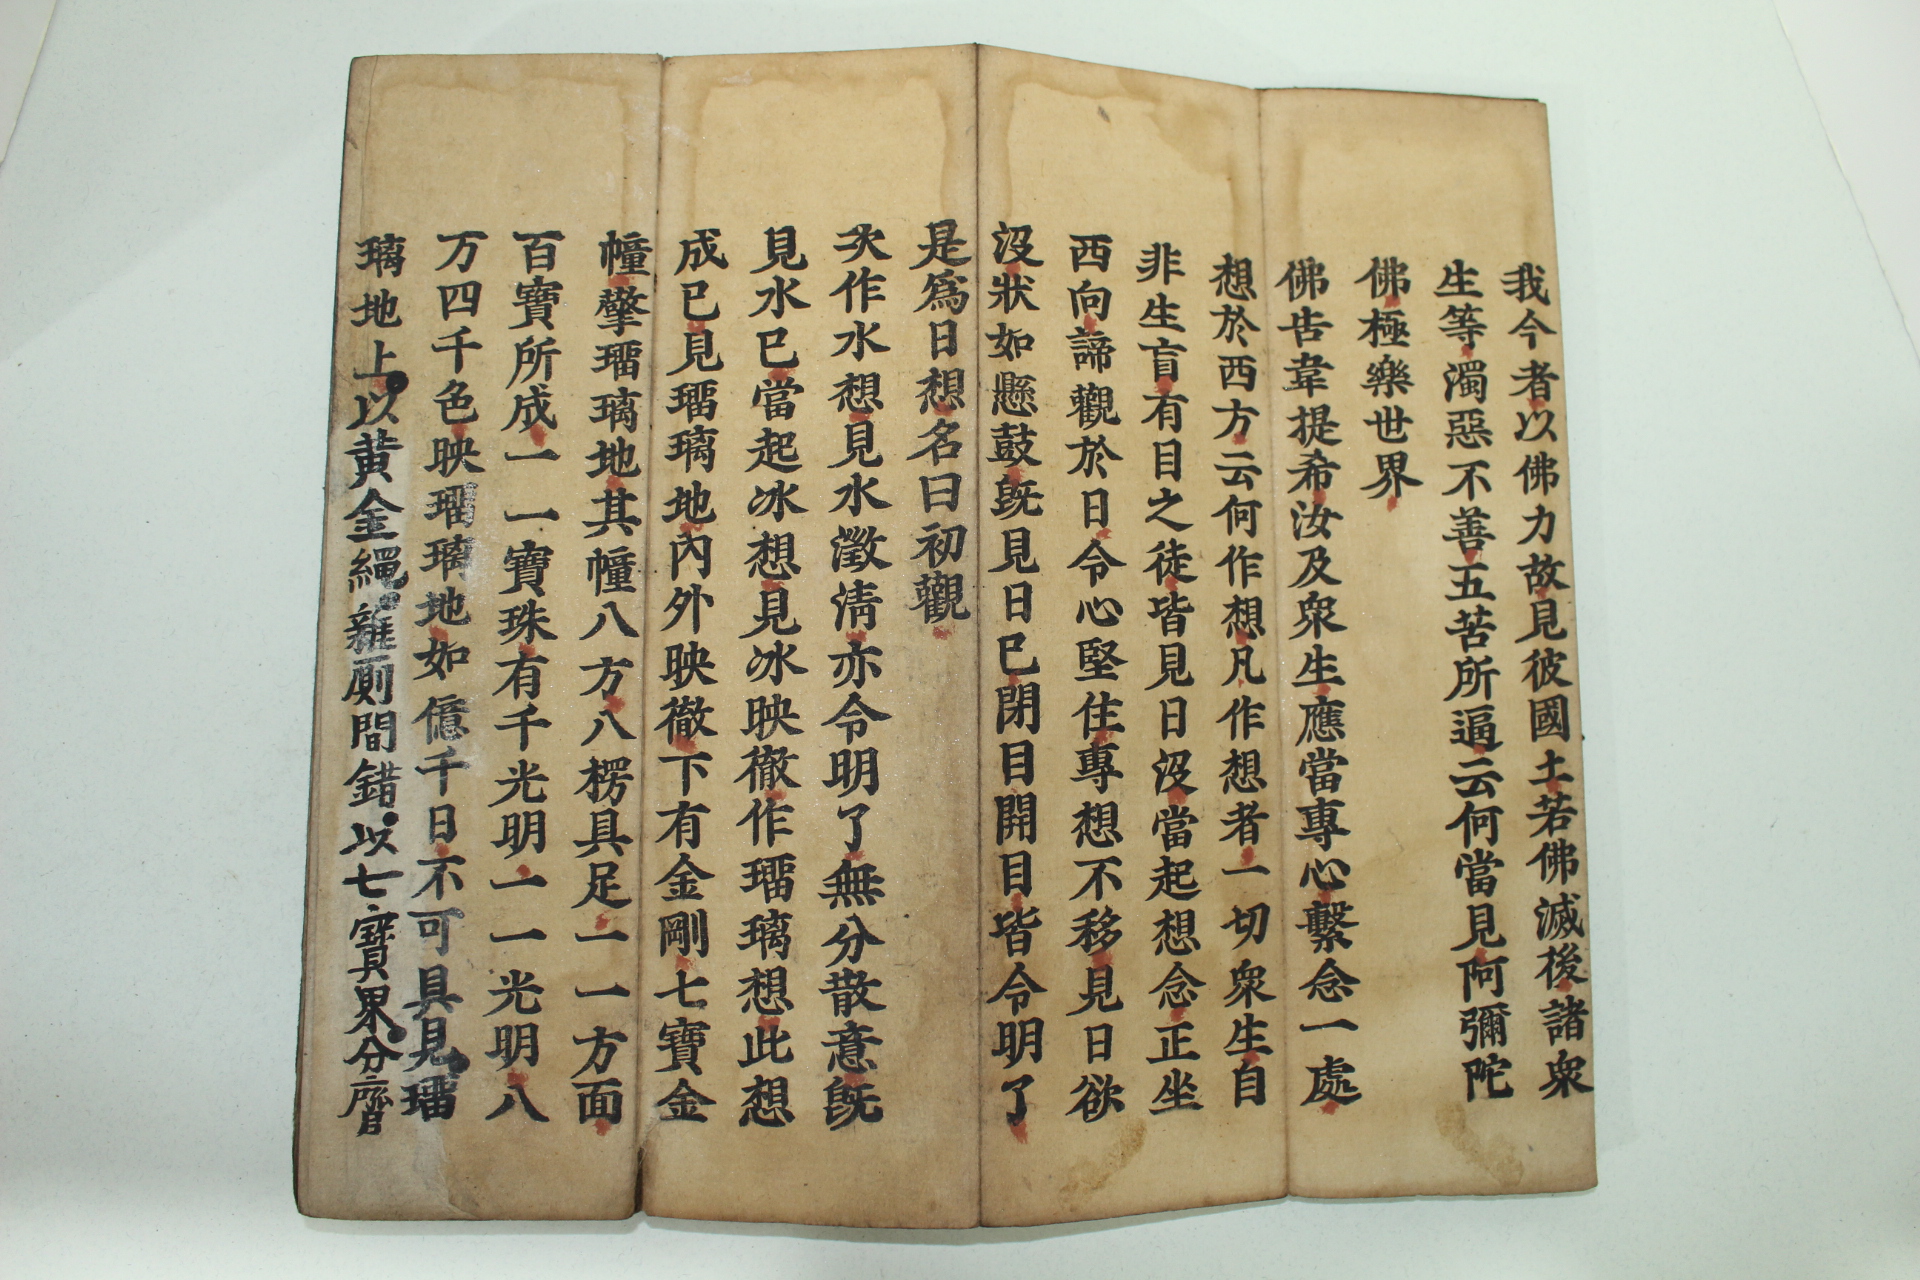 我今者以佛力故見彼國土若佛滅後諸衆
生等濁惡不善五苦所逼云何當見阿彌陀
佛極樂世界
佛告韋提希汝及衆生應當專心繫念一處
想於西方云何作想凡作想者一切衆生自
非生盲有目之徒皆見日沒當起想念正坐
西向諦觀於日令心堅住專想不移見日欲
沒狀如懸鼓旣見日已閉目開目皆令明了
是爲日想名曰初觀
次作水想見水澂清亦令明了無分散意旣
見水已當起冰想見冰映徹作瑠璃想此想
成已見瑠璃地內外映徹下有金剛七寶金
幢擎瑠璃地其幢八方八楞具足一一方面
百寶所成一一寶珠有千光明一一光明八
万四千色映瑠璃地如億千日不可具見瑠
璃地上以黄金繩雜厠間錯以七寶界分齊